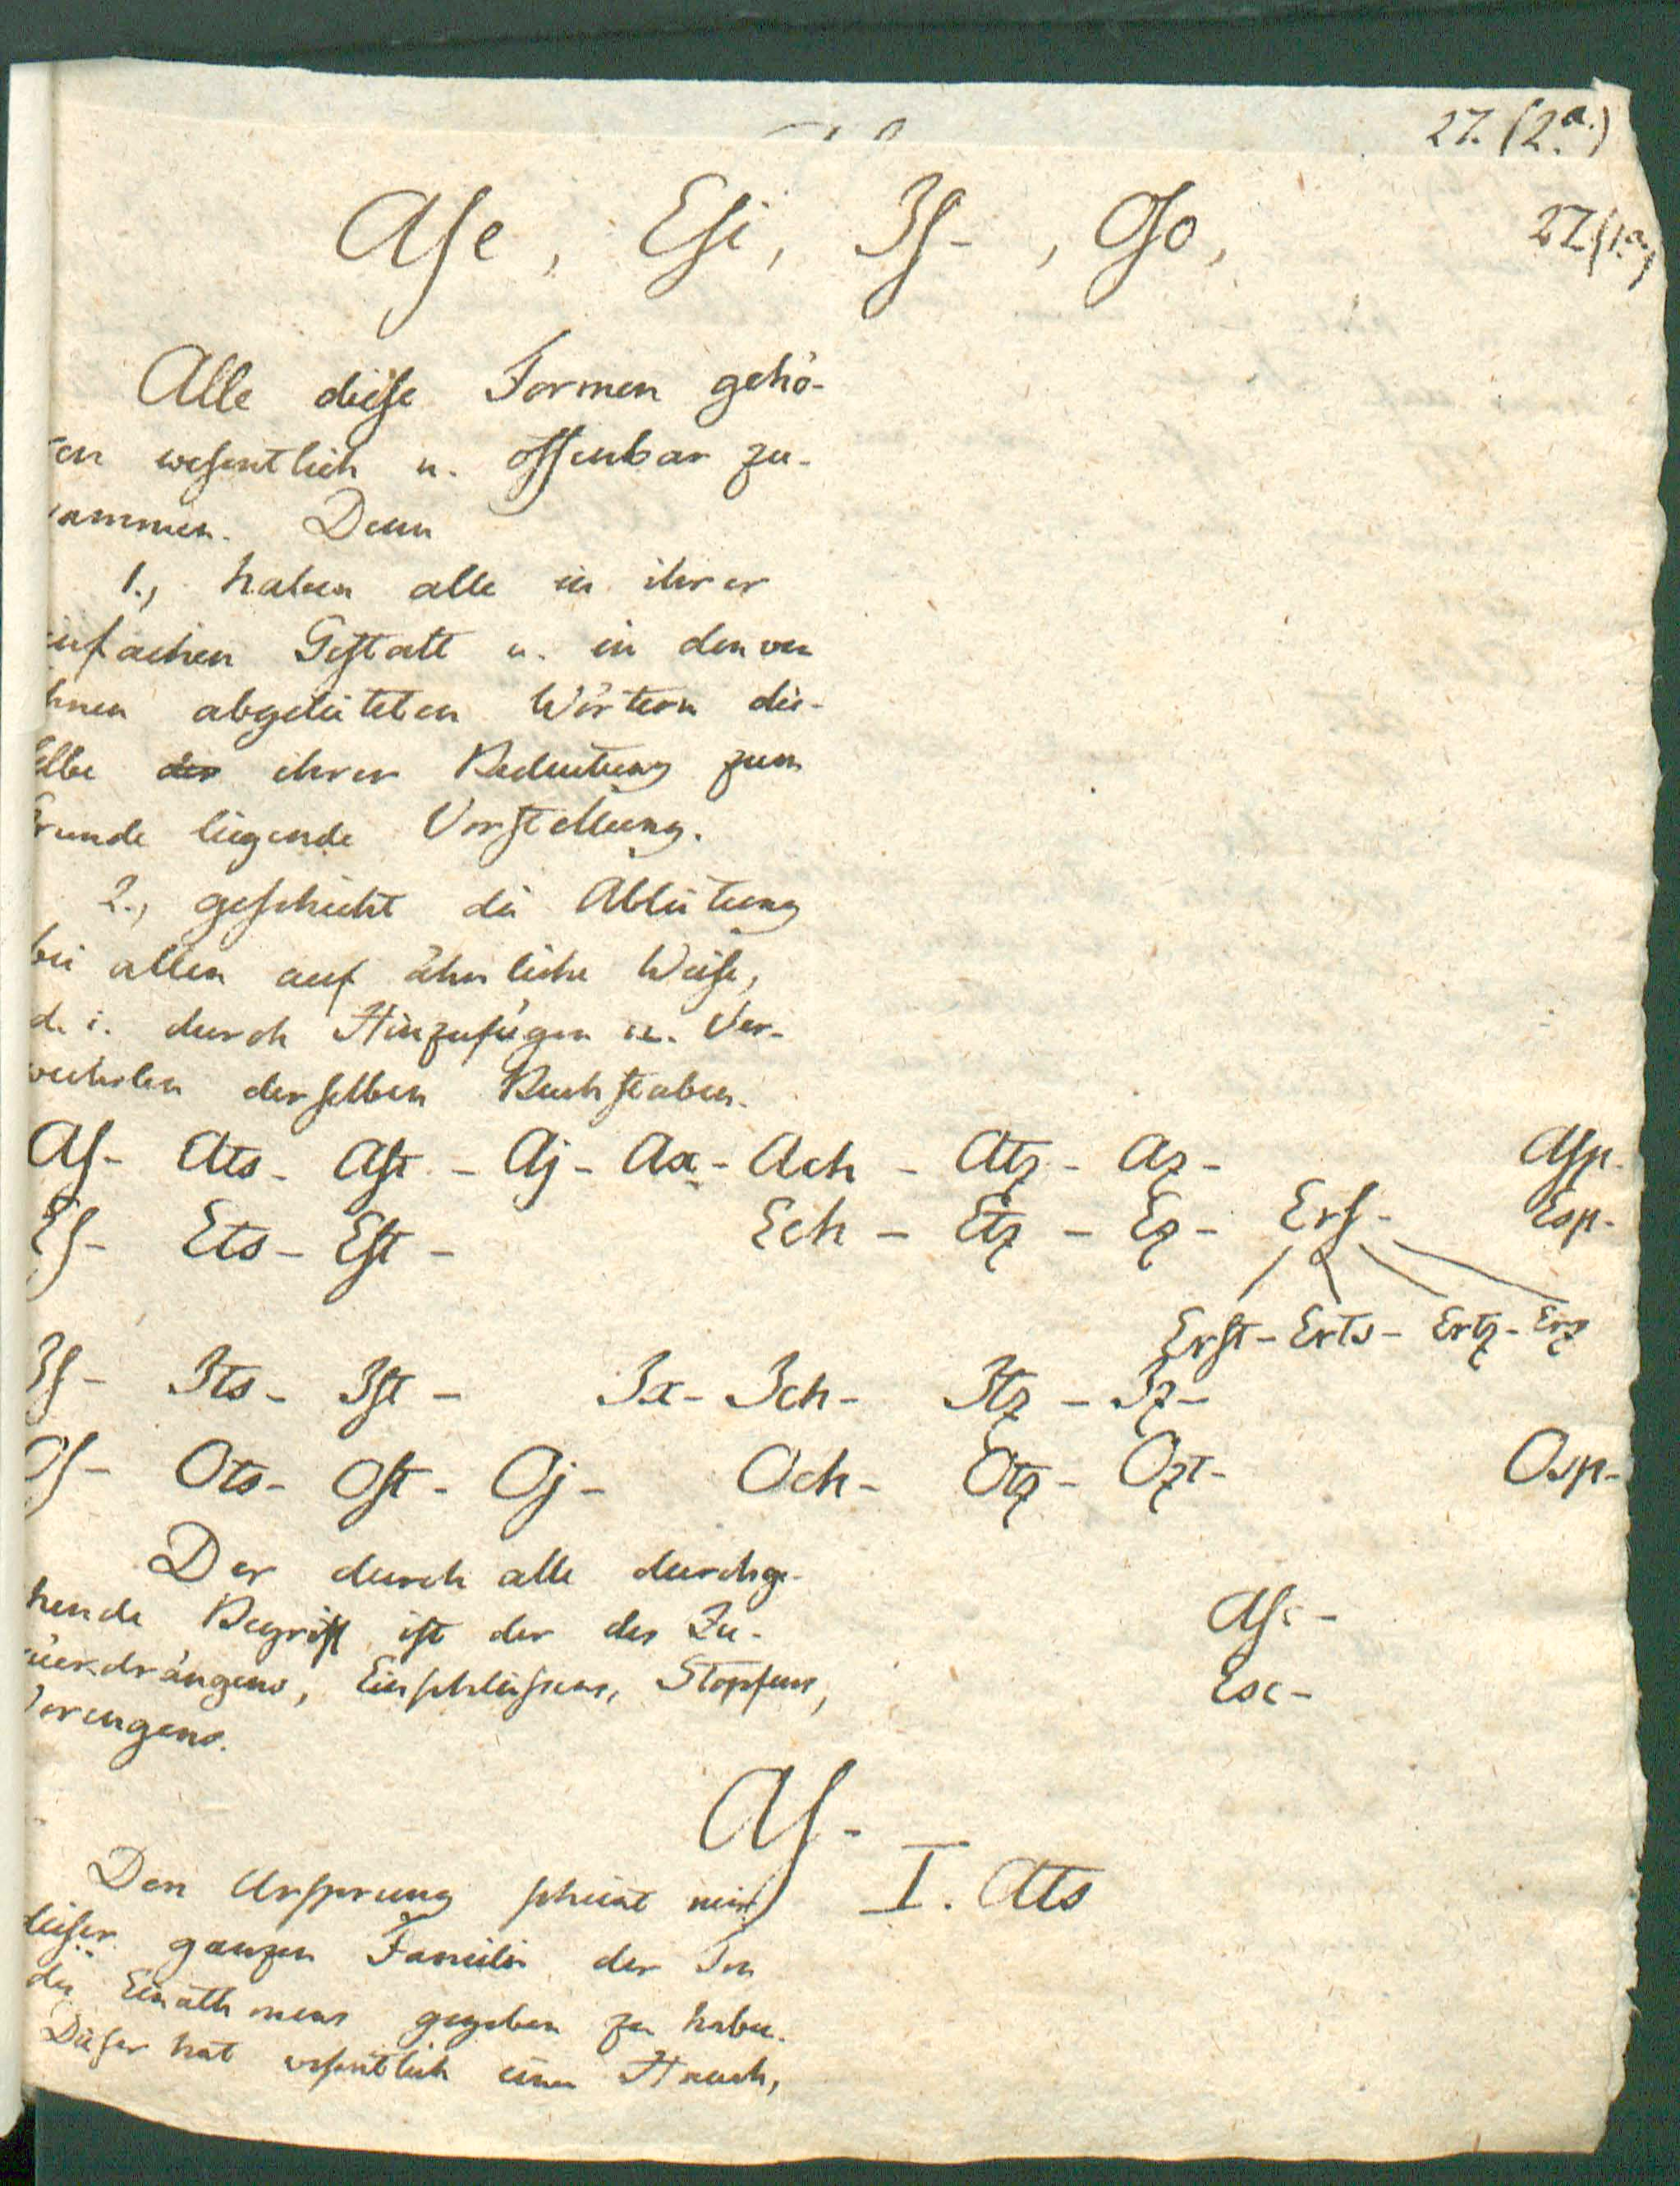 27. (2.a.)
Aſe, Eſi, Iſ-, Oſo,
27 (1.a.)
Alle dieſe Formen gehö-
ren weſentlich u. offenbar zu-
sammen. Denn
1., haben alle in ihrer
einfachen Geſtalt u. in den von
ihnen abgeleiteten Wörtern die-
ſelbe der ihrer Bedeutung zum
Grunde liegende Vorſtellung.
2., geſchieht die Ableitung
bei allen auf ähnliche Weiſe,
d. i. durch Hinzufügen u. Ver-
wechslen derſelben Buchſtaben.
Aſ- Ats- Aſt- Aj- Ax- Ach- Atz- Az- Aſp-
Eſ- Ets- Eſt- Ech- Etz- Ez- Erſ- Esp-
Erſt- Erts- Ertz- Erz
Iſ- Its- Iſt- Ix- Ich- Itz- Iz-
Oſ- Ots- Oſt- Oj- Och- Otz- Ozt- Osp-
Der durch alle durchge-
hende Begriff iſt der des Zu-
rückdrängens, Einſchlieſsens, Stopfens,
Verengens.
Aſc-
Esc-
Aſ-
I. Ats
Den Urſprung ſcheint mir
dieſer ganzen Familie der Ton
des Einathmens gegeben zu haben.
Dieſer hat weſentlich einen Hauch,